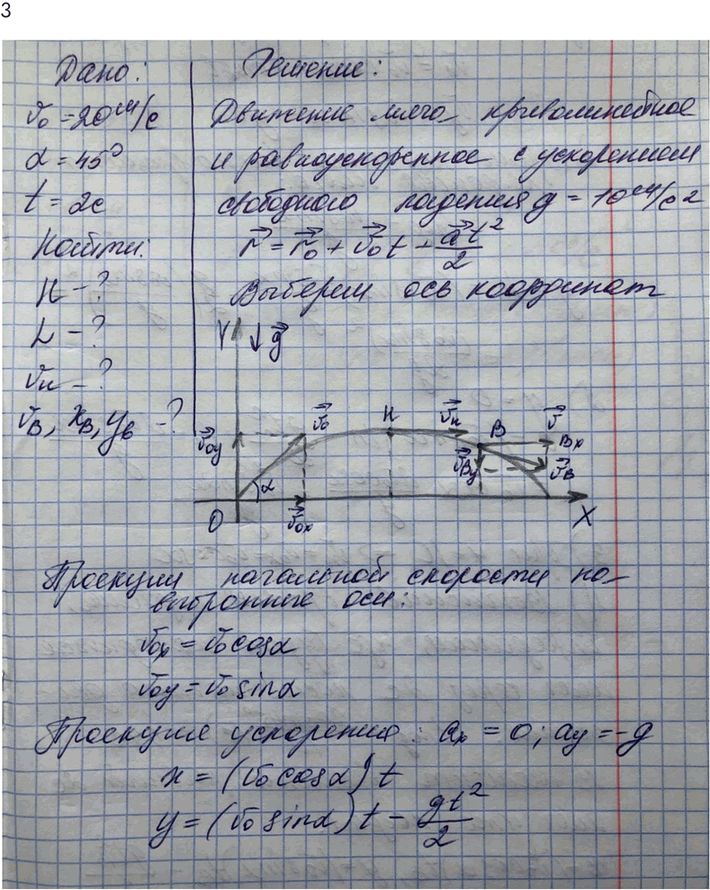 3
Дано:
v₀ = 20 м/с
α = 45°
t = 2с
Найти:
H - ?
L - ?
vн - ?
v⃗в, xв, yв - ?
Решение:
Движение мяча криволинейное
и равноускоренное с ускорением
свободного падения g = 10 м/с²
r⃗ = r⃗₀ + v⃗₀t + a⃗t²/2
Выберем ось координат
Y ↓ g⃗
v⃗₀y v⃗₀ H v⃗н B v⃗ Bx
v⃗By v⃗B
α
O v⃗₀x X
Проекции начальной скорости на
выбранные оси:
v₀x = v₀cosα
v₀y = v₀sinα
Проекция ускорения: aₓ = 0; ay = -g
x = (v₀cosα)t
y = (v₀sinα)t - gt²/2